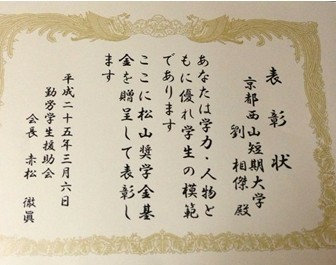 表彰状
京都西山短期大学
劉相傑 殿
あなたは学力・人物と
もに優れ学生の模範
であります
ここに松山奨学金基
金を贈呈して表彰し
ます
平成二十五年三月六日
勤労学生援助会
会長 赤松 徹眞